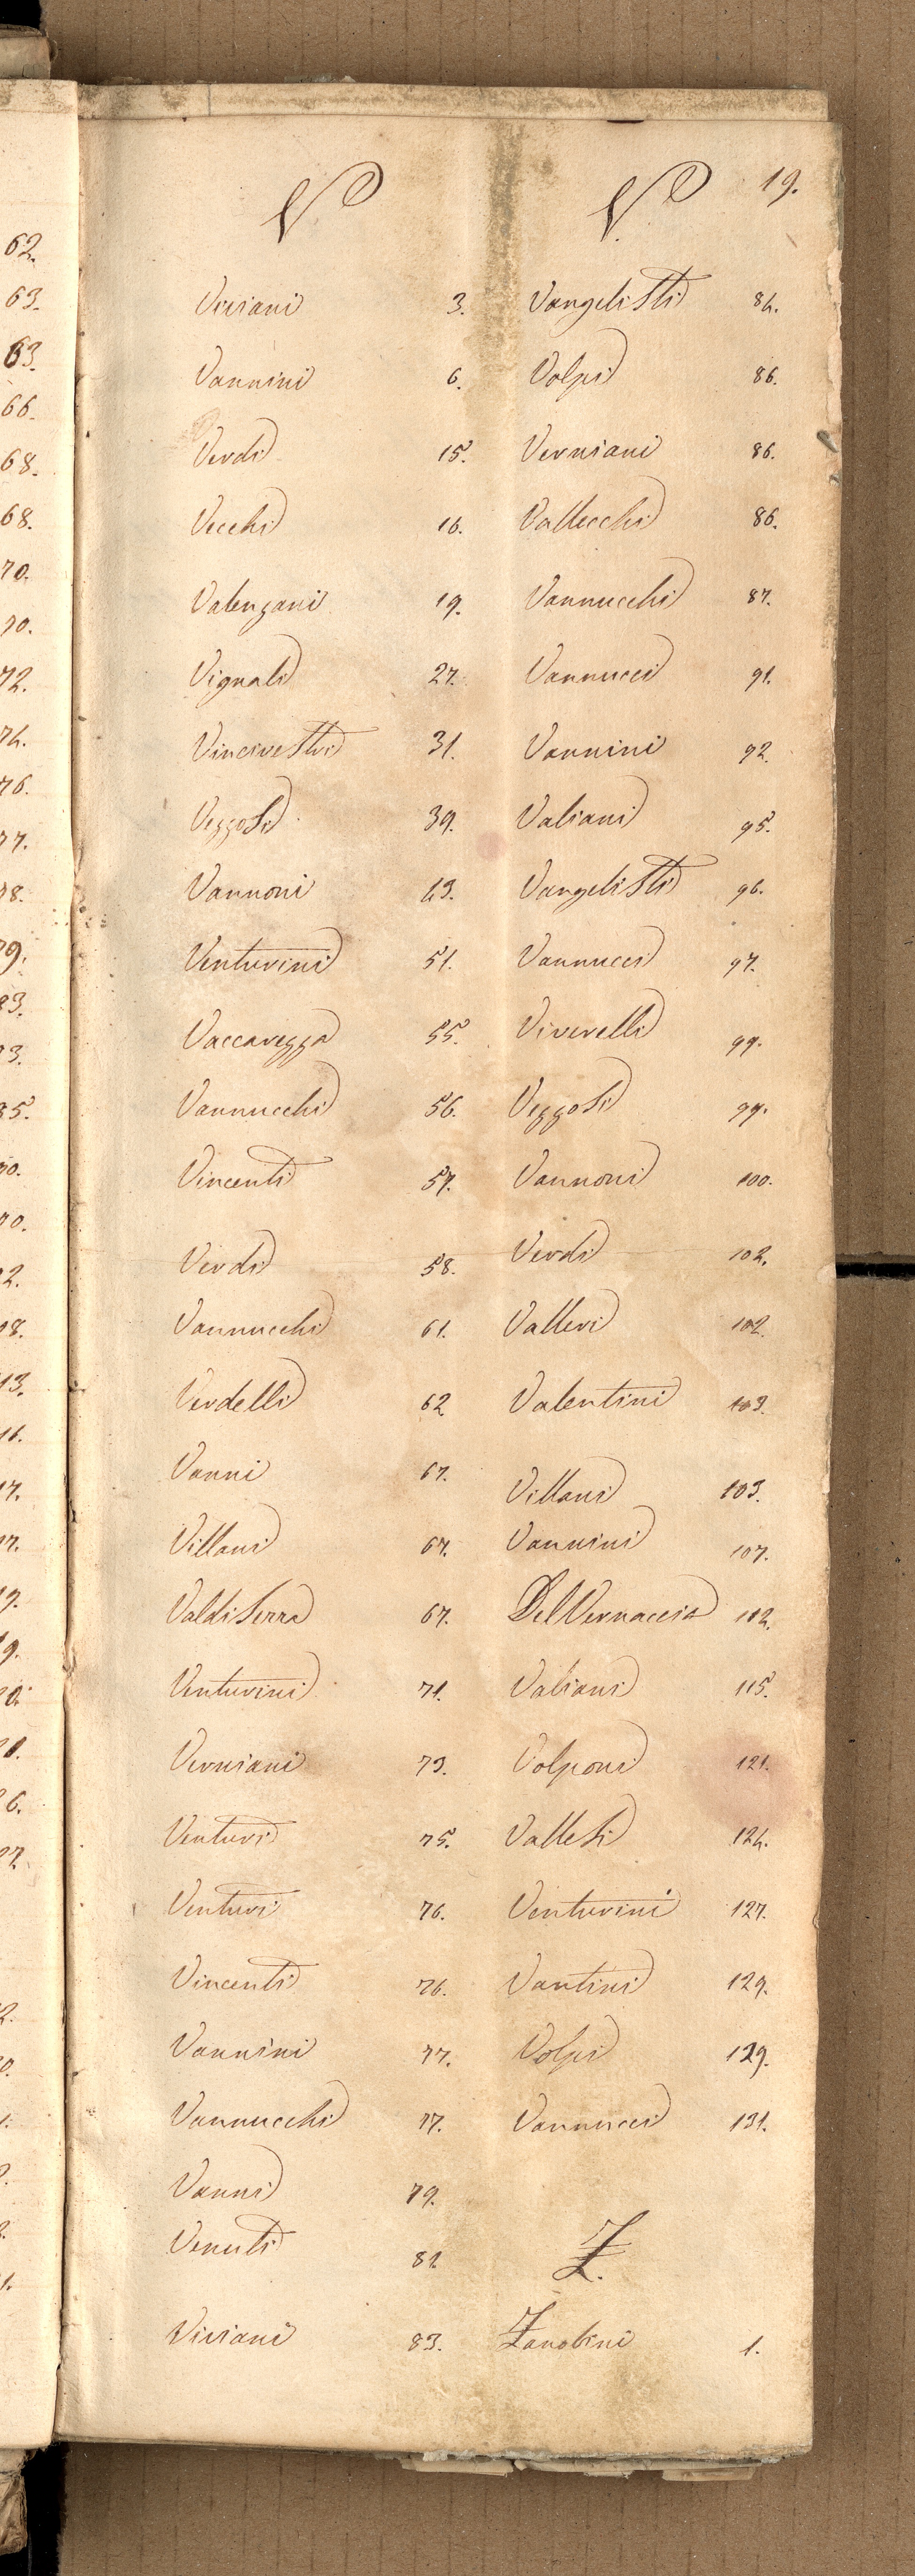 62.
63.
63.
66.
68.
68.
70.
70.
72.
74.
76.
77.
78.
79.
V
Viviani 3.
Vannini 6.
Verdi 15.
Vecchi 16.
Valenzani 19.
Vignali 27.
Vincinestri 31.
Vezzosi 39.
Vannoni 43.
Venturini 51.
Vaccarezza 55.
Vannucchi 56.
Vincenti 57.
Verdi 58.
Vannucchi 61.
Verdelli 62
Vanni 67.
Villani 67.
Valdiserra 67.
Venturini 71.
Verniani 73.
Venturi 75.
Venturi 76.
Vincenti 76.
Vannini 77.
Vannucchi 77.
Vanni 79.
Venuti 82
Viviani 83.
V. 19.
Vangelisti 84.
Volpi 86.
Verniani 86.
Vallecchi 86.
Vannucchi 87.
Vannucci 91.
Vannini 92.
Valiani 95.
Vangelisti 96.
Vannucci 97.
Viverelli 99.
Vezzosi 99.
Vannoni 100.
Verdi 102.
Valleri 102.
Valentini 103.
Villani 103.
Vannini 107.
Del Vernaccia 112.
Valiani 115.
Volponi 121.
Vallesi 124.
Venturini 127.
Vantini 129.
Volpi 129.
Vannucci 131.
Z.
Zanobini 1.